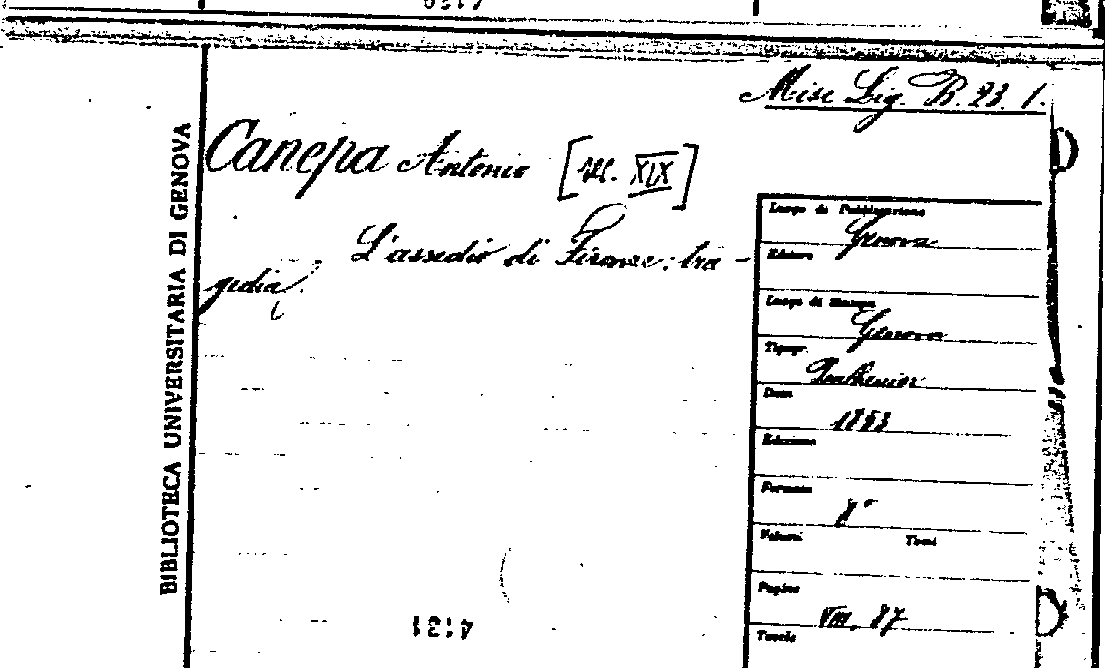 Misc Lig. B. 23. 1.
BIBLIOTECA UNIVERSITARIA DI GENOVA
Canepa Antonio [sec. XIX]
L'assedio di Firenze: tra-
gedia.
Luogo di Pubblicazione
Genova
Editore
Luogo di Stampa
Genova
Tipogr.
Data
Edizione
Formato
8°
Volumi Tomi
Pagine
VIII, 87
Tavole
4131